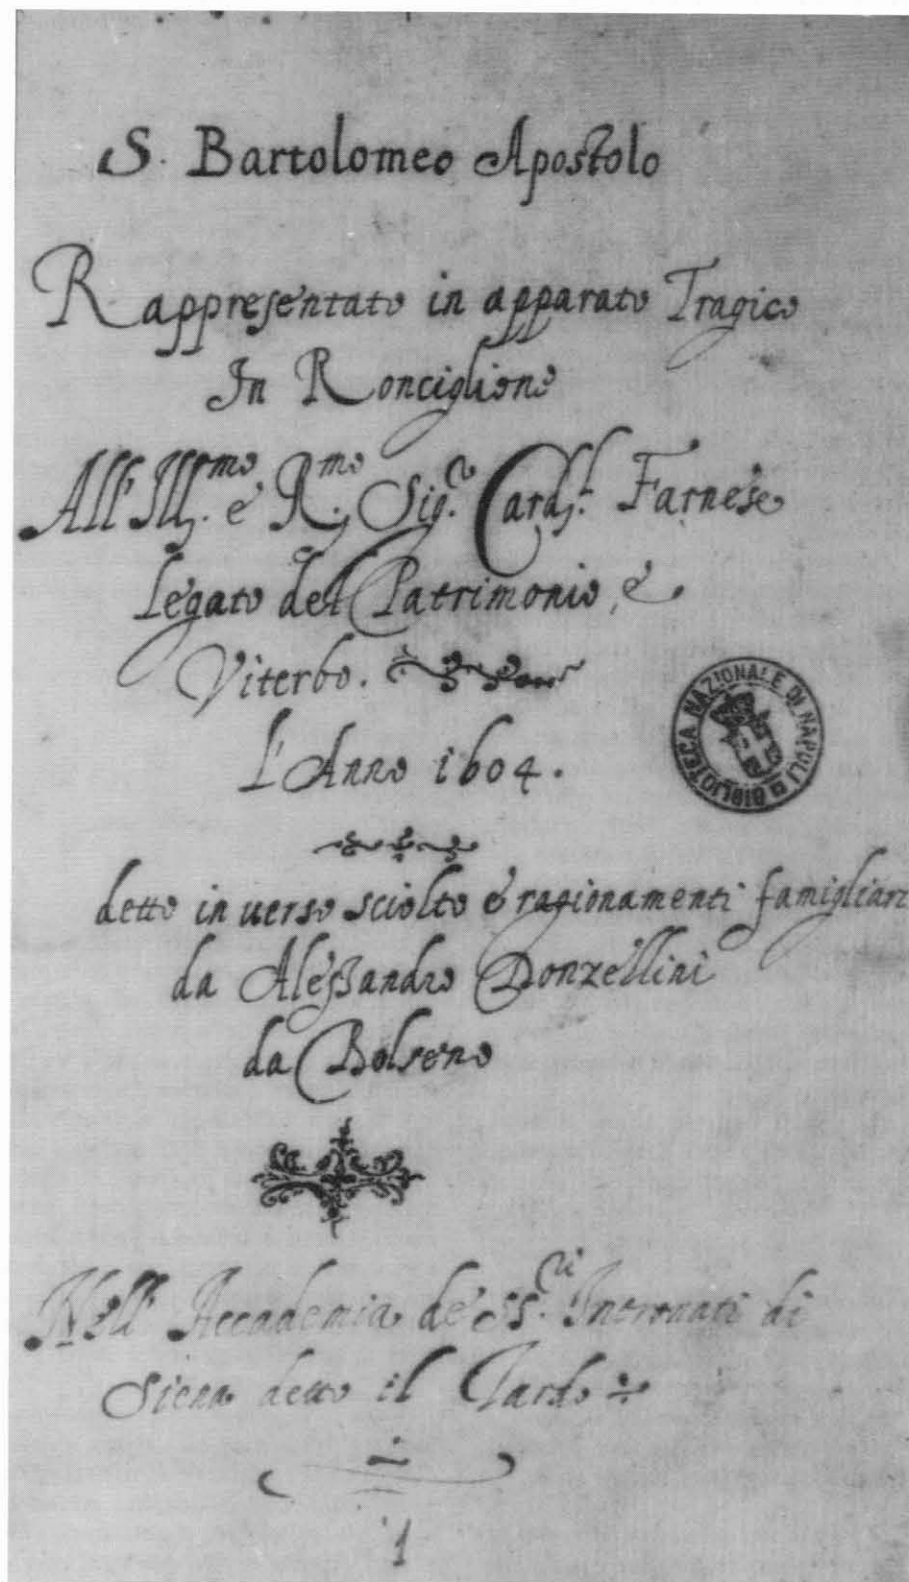 S. Bartolomeo Apostolo
Rappresentato in apparato Tragico
In Ronciglione
All' Ill.mo e R.mo Sig.r Card.l Farnese
Legato del Patrimonio, e
Viterbo.
L'Anno 1604.
BIBLIOTECA NAZIONALE DI NAPOLI
detto in uerso sciolto e ragionamenti famigliari
da Alessandro Donzellini
da Bolseno
Nell' Accademia de SS.ri Intronati di
Siena detto il Tardo
1